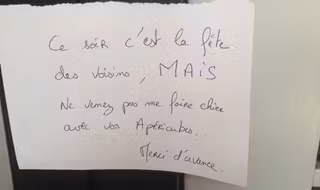 Ce soir c'est la fête
des voisins, MAIS
Ne venez pas me faire chier
avec vos Apéricubes.
Merci d'avance.